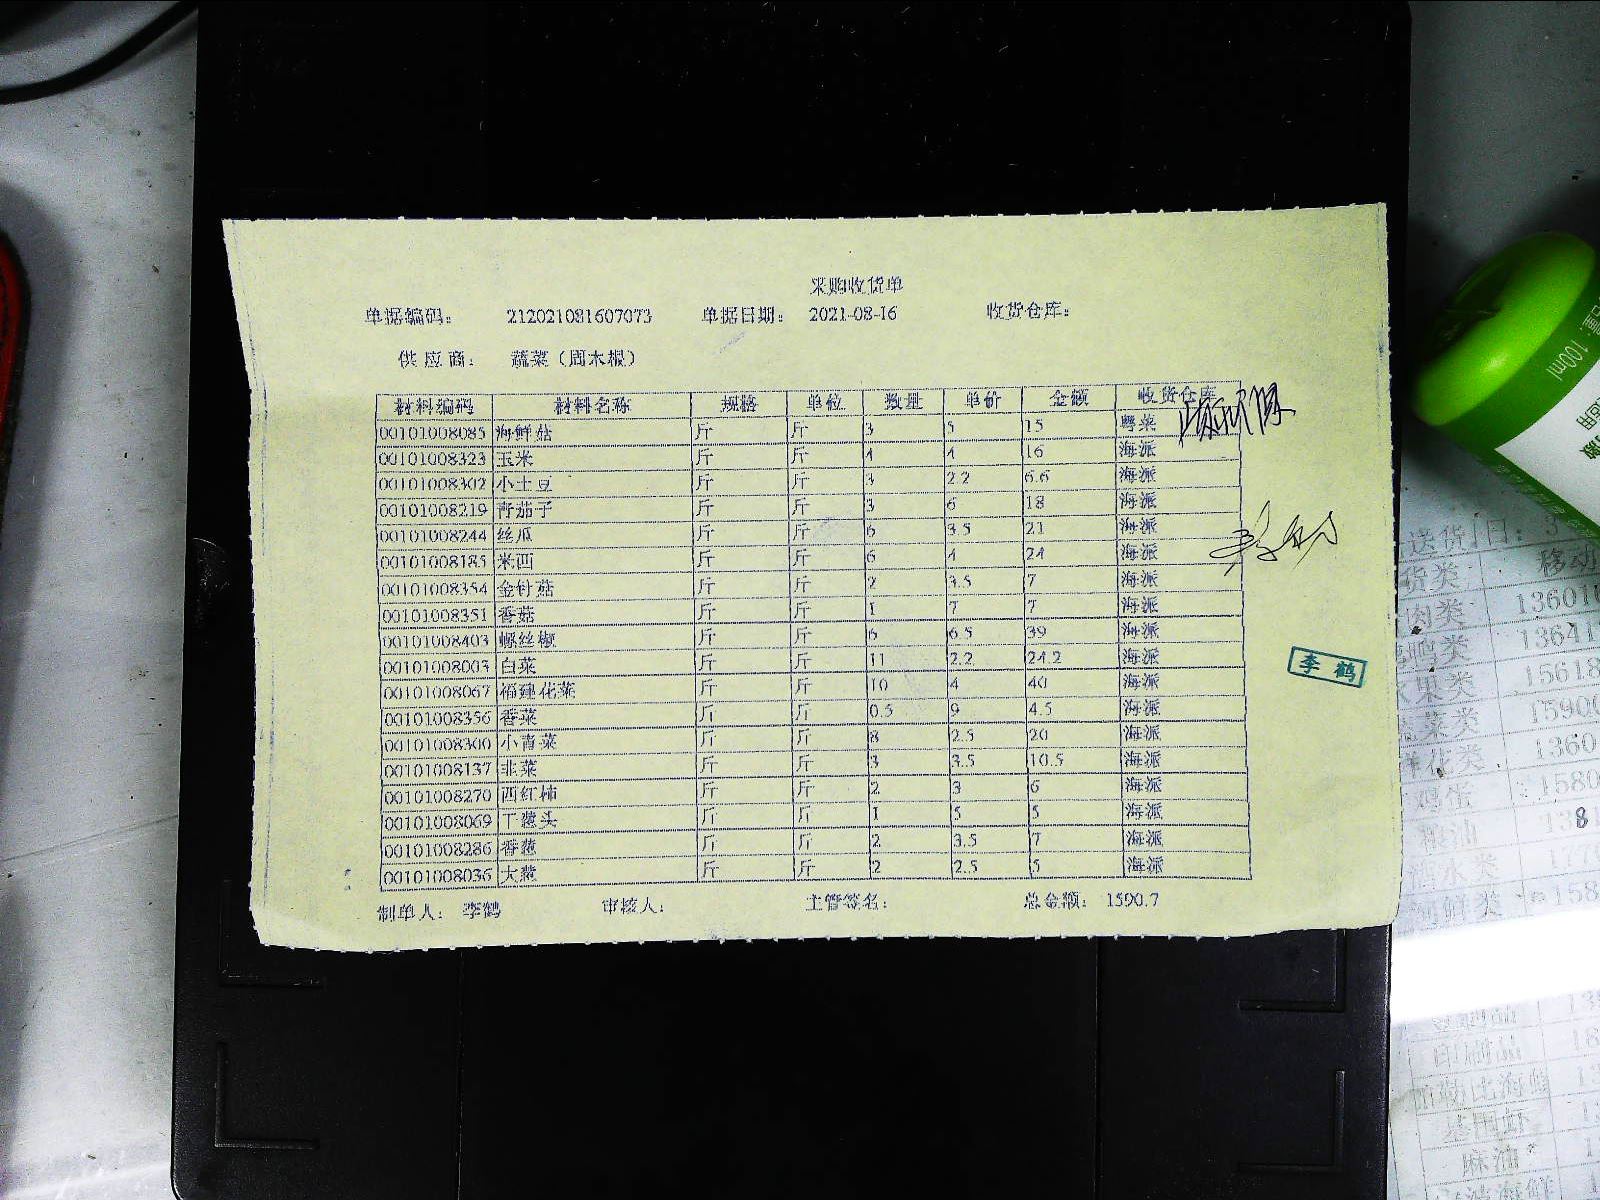 采购收货单
单据编码： 212021081607073 单据日期： 2021-08-16 收货仓库：
供应商： 蔬菜（周木根）
材料编码 材料名称 规格 单位 数量 单价 金额 收货仓库
00101008085 海鲜菇 斤 斤 3 5 15 粤菜
00101008323 玉米 斤 斤 4 4 16 海派
00101008302 小土豆 斤 斤 3 2.2 6.6 海派
00101008219 青茄子 斤 斤 3 6 18 海派
00101008244 丝瓜 斤 斤 6 3.5 21 海派
00101008185 米西 斤 斤 6 4 24 海派
00101008354 金针菇 斤 斤 2 3.5 7 海派
00101008351 香菇 斤 斤 1 7 7 海派
00101008403 螺丝椒 斤 斤 6 6.5 39 海派
00101008003 白菜 斤 斤 11 2.2 24.2 海派
00101008067 福建花菜 斤 斤 10 4 40 海派
00101008356 香菜 斤 斤 0.5 9 4.5 海派
00101008300 小青菜 斤 斤 8 2.5 20 海派
00101008137 韭菜 斤 斤 3 3.5 10.5 海派
00101008270 西红柿 斤 斤 2 3 6 海派
00101008069 干葱头 斤 斤 1 5 5 海派
00101008286 香葱 斤 斤 2 3.5 7 海派
00101008036 大葱 斤 斤 2 2.5 5 海派
制单人： 李鹤 审核人： 主管签名： 总金额： 1590.7
李鹤
100ml
送货 日：
货类 移动
肉类 13601
鸭类 13641
水果类 15618
菜类 15900
花类 1360
鸡蛋 1580
粮油 138
酒水类
海鲜类 158
印刷品 18
加勒比海鲜
基围虾
麻油